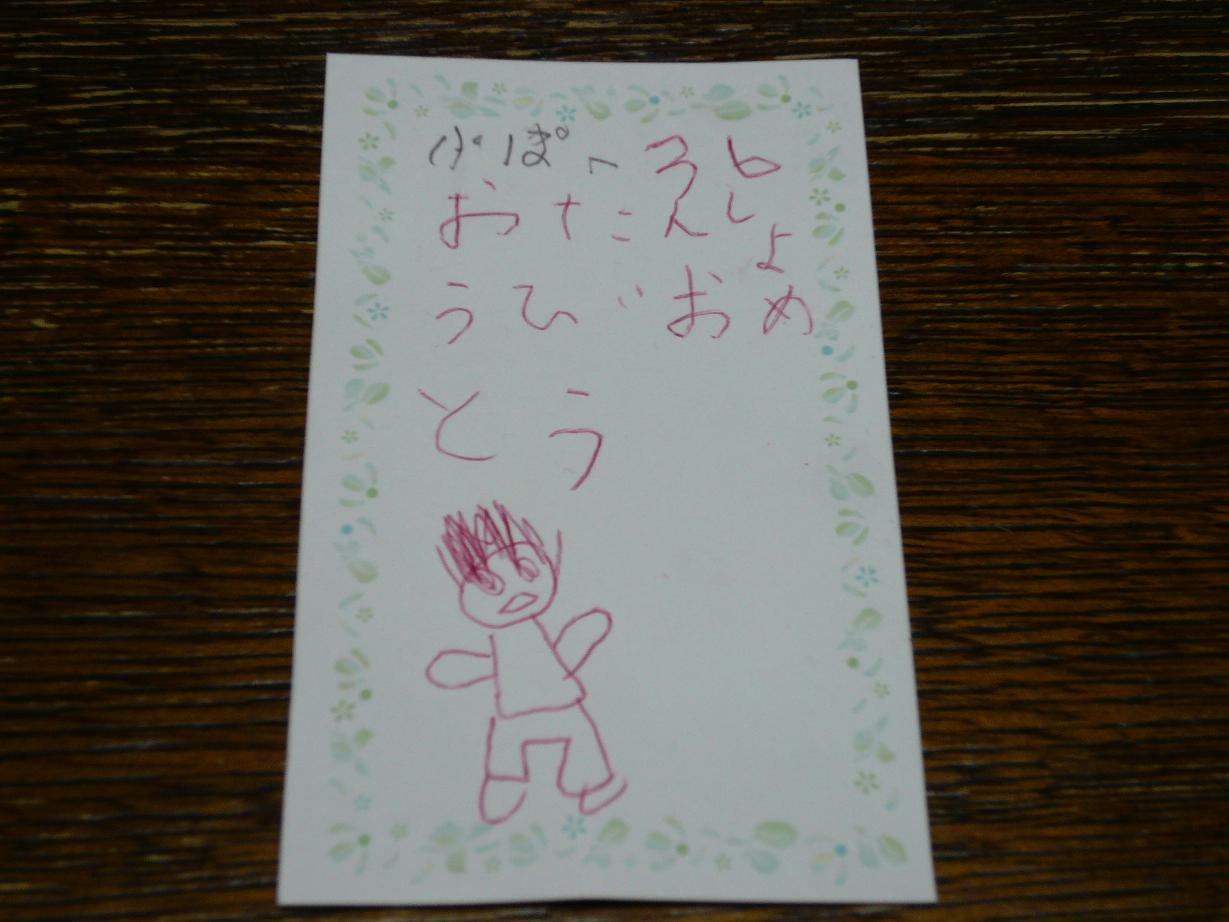 ぱへ ろ
おたんしょ
うびおめ
とう